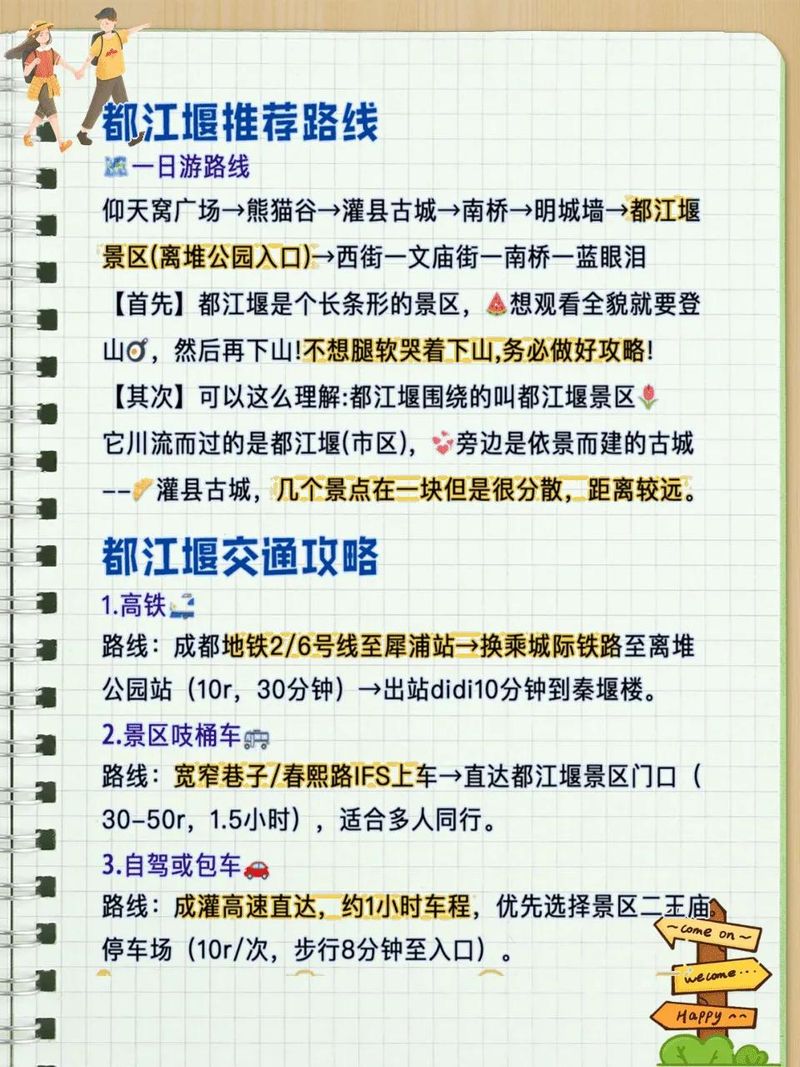 都江堰推荐路线
一日游路线
仰天窝广场→熊猫谷→灌县古城→南桥→明城墙→都江堰
景区(离堆公园入口)→西街—文庙街—南桥—蓝眼泪
【首先】都江堰是个长条形的景区，🍉想观看全貌就要登
山🍳，然后再下山!不想腿软哭着下山,务必做好攻略!
【其次】可以这么理解:都江堰围绕的叫都江堰景区🌷
它川流而过的是都江堰(市区)，💞旁边是依景而建的古城
--🌮灌县古城，几个景点在一块但是很分散，距离较远。
都江堰交通攻略
1.高铁🚅
路线：成都地铁2/6号线至犀浦站→换乘城际铁路至离堆
公园站（10r，30分钟）→出站didi10分钟到秦堰楼。
2.景区吱桶车🚌
路线：宽窄巷子/春熙路IFS上车→直达都江堰景区门口（
30-50r，1.5小时），适合多人同行。
3.自驾或包车🚗
路线：成灌高速直达，约1小时车程，优先选择景区二王庙
停车场（10r/次，步行8分钟至入口）。
~come on~
welcome...
Happy ^^